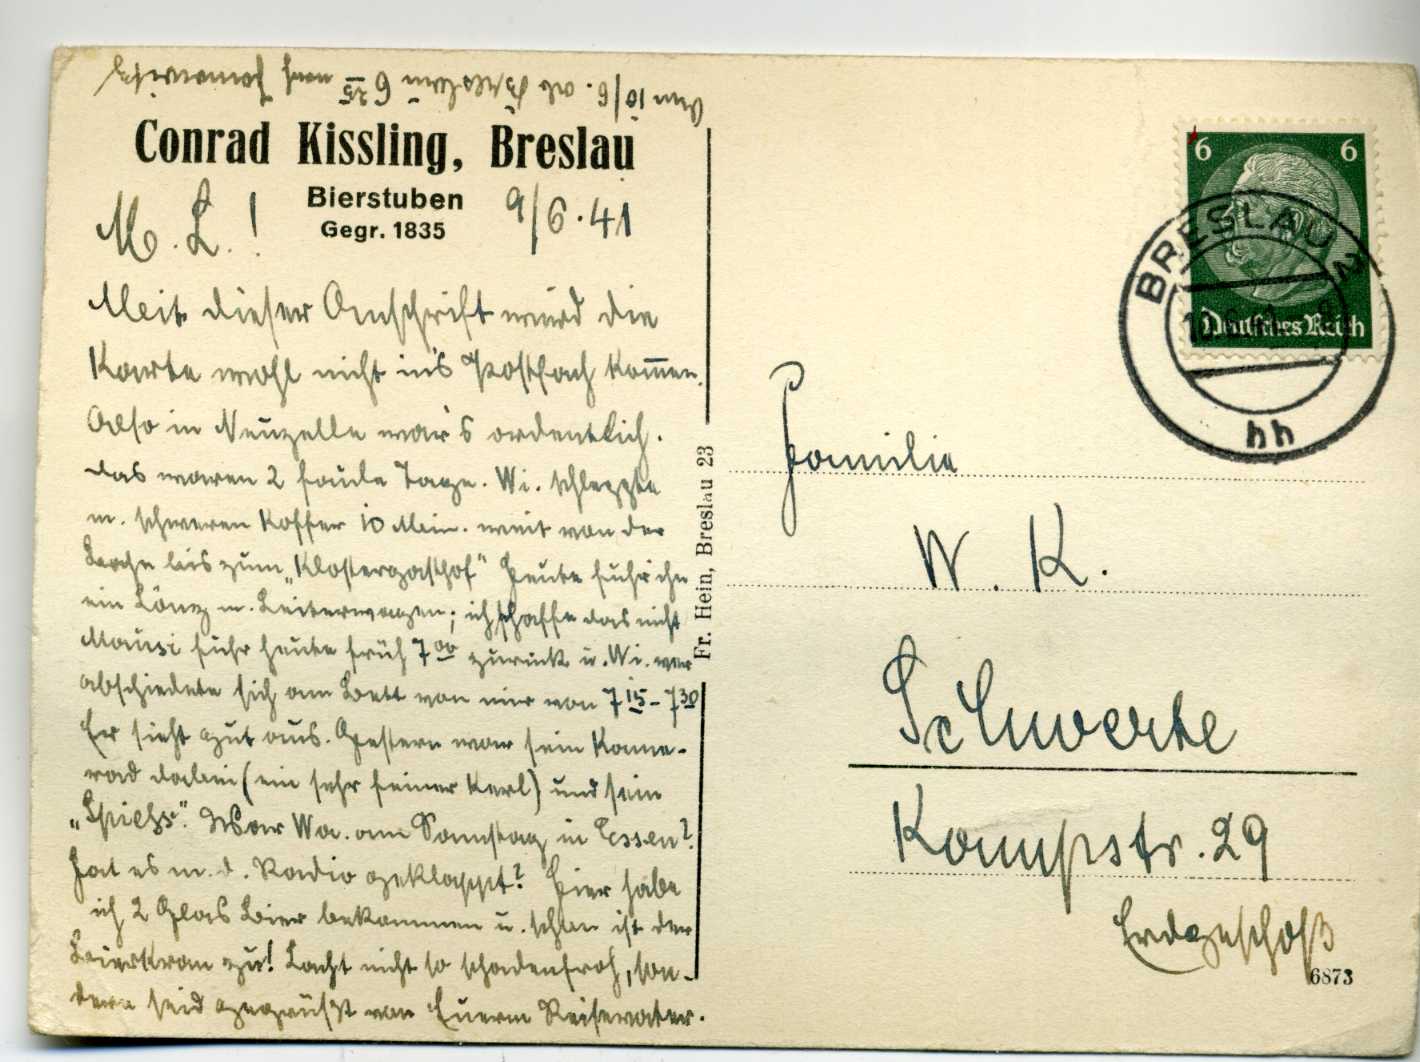 Am 10/6. ab Breslau 6 25 nach
Conrad Kissling, Breslau
Bierstuben
Gegr. 1835
M. L.! 9/6.41
Mit dieser Anschrift wird die
Karte wohl nicht in's Postfach kom̅en.
Also in Neuzelle war's ordentlich.
das waren 2 faule Tage. Wi. schleppte
m. schweren Koffer 10 Min. weit von der
bis zum „Klostergasthof" heute fuhr ihn
ein m. Leiterwagen; ich schaffe das nicht
Mausi fuhr heute früh 7 00 zurück u. Wi. ver
abschiedete sich am Bett von mir von 7 15 - 7 30
Er sieht gut aus. Gestern war sein Kame-
rad dabei (ein sehr feiner Kerl) und sein
„Spiess". War Wa. am Samstag in Essen?
Hat es m. d. Radio geklappt? Hier habe
ich 2 Glas Bier bekommen u. schon ist der
Bierkran zu! Lacht nicht so schadenfroh, son-
dern seid gegrüßt von Euerm Reisevater.
Fr. Hein, Breslau 23
6 6
Deutsches Reich
BRESLAU 2
hh
Familie
W. K.
Schwerte
Kampstr. 29
Erdgeschoß
6873